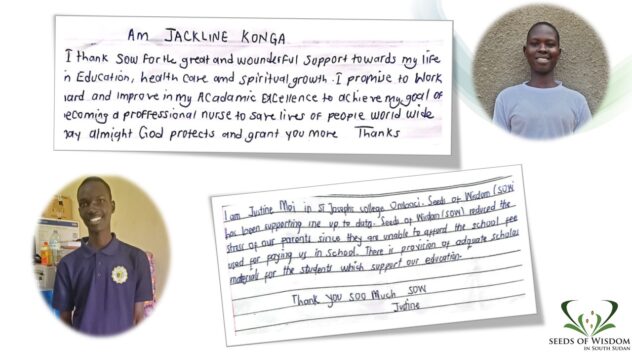 AM JACKLINE KONGA
I thank SOW for the great and wounderful support towards my life
n Education, health care and spiritual growth. I promise to work
ard and improve in my Acadamic Excellence to achieve my goal of
ecoming a proffessional nurse to save lives of people world wide
ay almight God protects and grant you more Thanks
I am Justine Moi in St Josephs college Ombaci. Seeds of Wisdom (SOW
has been supporting me up to data. Seeds of Wisdom (SOW) reduced the
stress of our parents since they are unable to afford the school fee
used for paying us in school. There is provision of adquate scholas
materials for the students which support our education.
Thank you soo much SOW
Justine
SEEDS OF WISDOM
IN SOUTH SUDAN